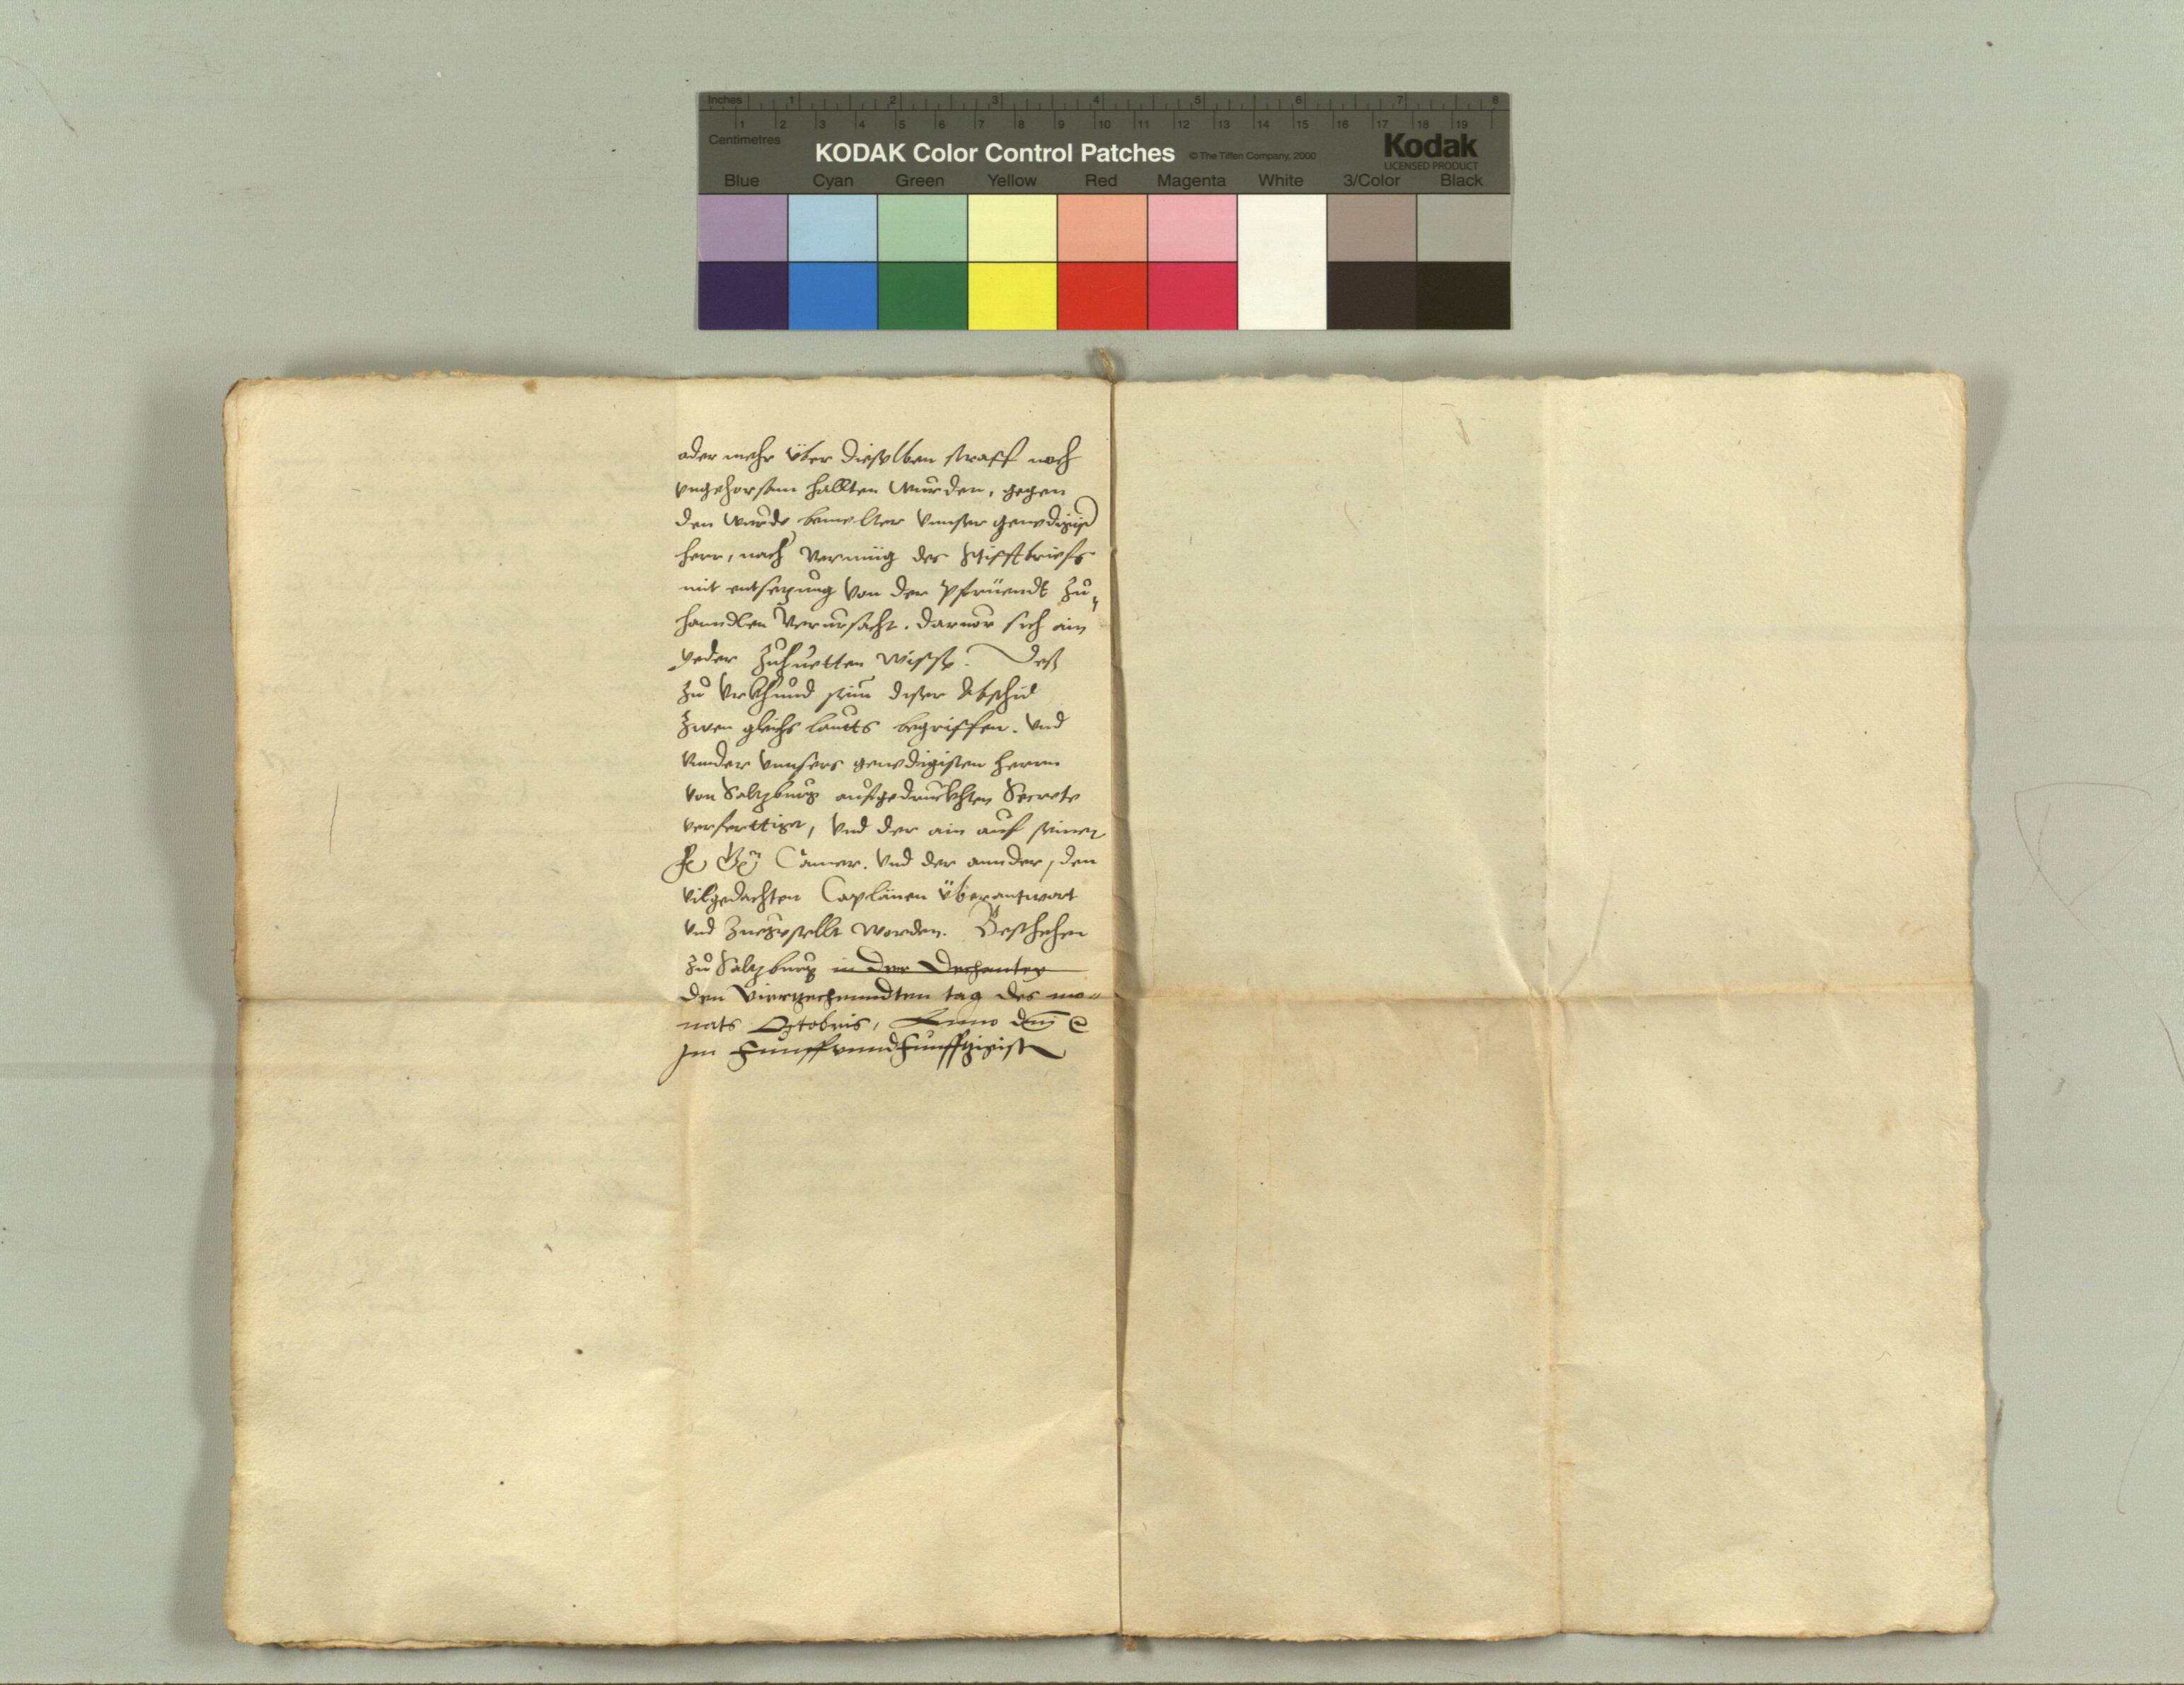 Inches 1 2 3 4 5 6 7 8
1 2 3 4 5 6 7 8 9 10 11 12 13 14 15 16 17 18 19
Centimetres
KODAK Color Control Patches © The Tiffen Company, 2000 Kodak
LICENSED PRODUCT
Blue Cyan Green Yellow Red Magenta White 3/Color Black
oder mehr über dieselben straff noch
ungehorsam hallten wurden, gegen
den wurde bemelter vnnser genedigist
herr, nach vermüg des Stifftbriefs
mit entsezung von der Pfrüendt zu,
hanndlen verursacht. Daruor sich ain
yeder zuhuetten wisse. Deß
zu vrkhund sein diser Abschid
zwen gleichs lautts begriffen. Vnd
vnnder vnnsers genedigisten herrn
von Salzburg aufgedruckhten Secrete
verferttiget, vnd der ain auf seiner
Camer. Vnd der annder, den
vilgedachten Caplänen überantwort
vnd zuegestellt worden. Beschehen
zu Salzburg in der Dechantey
den vierzechenndten tag des mo-
nats Octobris, Anno dni
Im Funffvnndfunffzigist